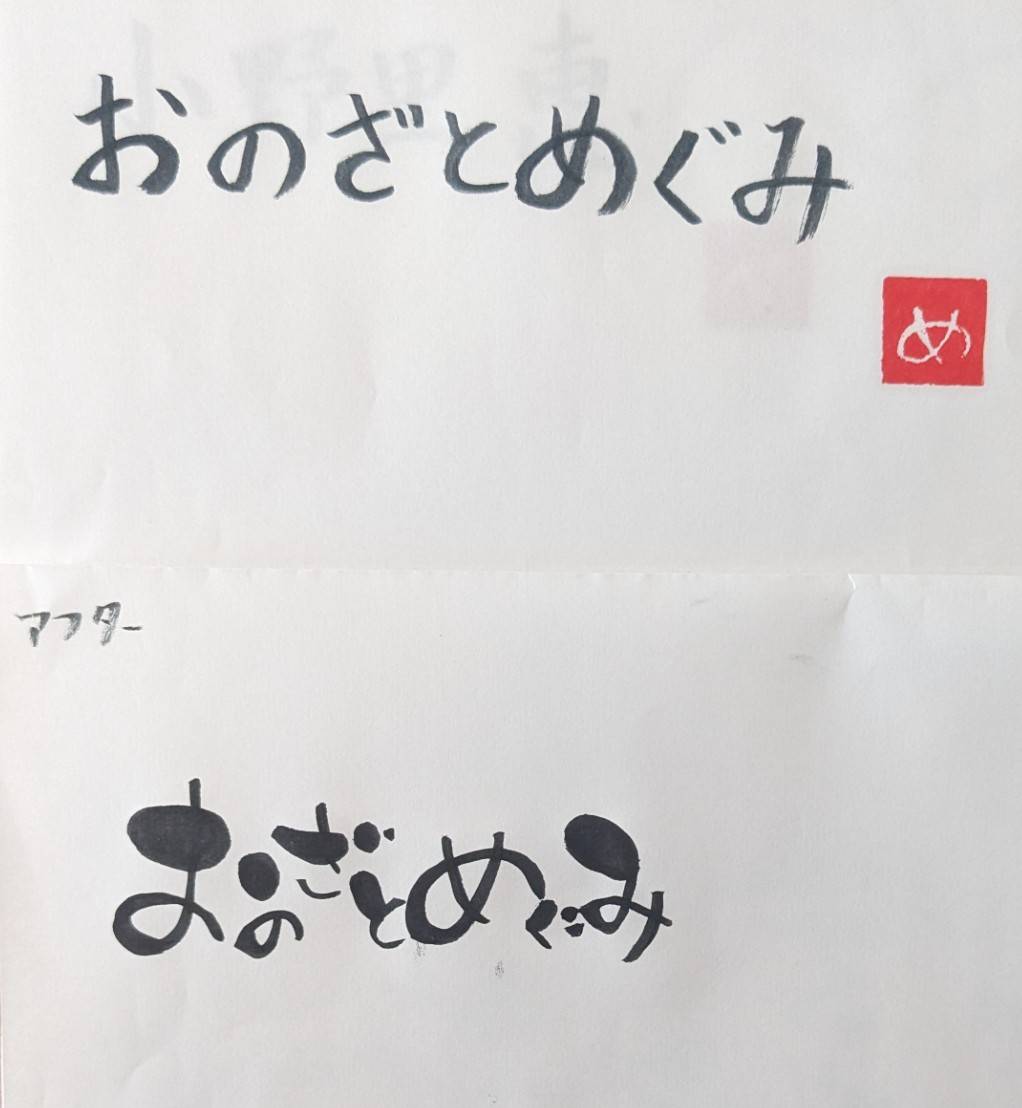 おのざとめぐみ
め
アフター
おのざとめぐみ